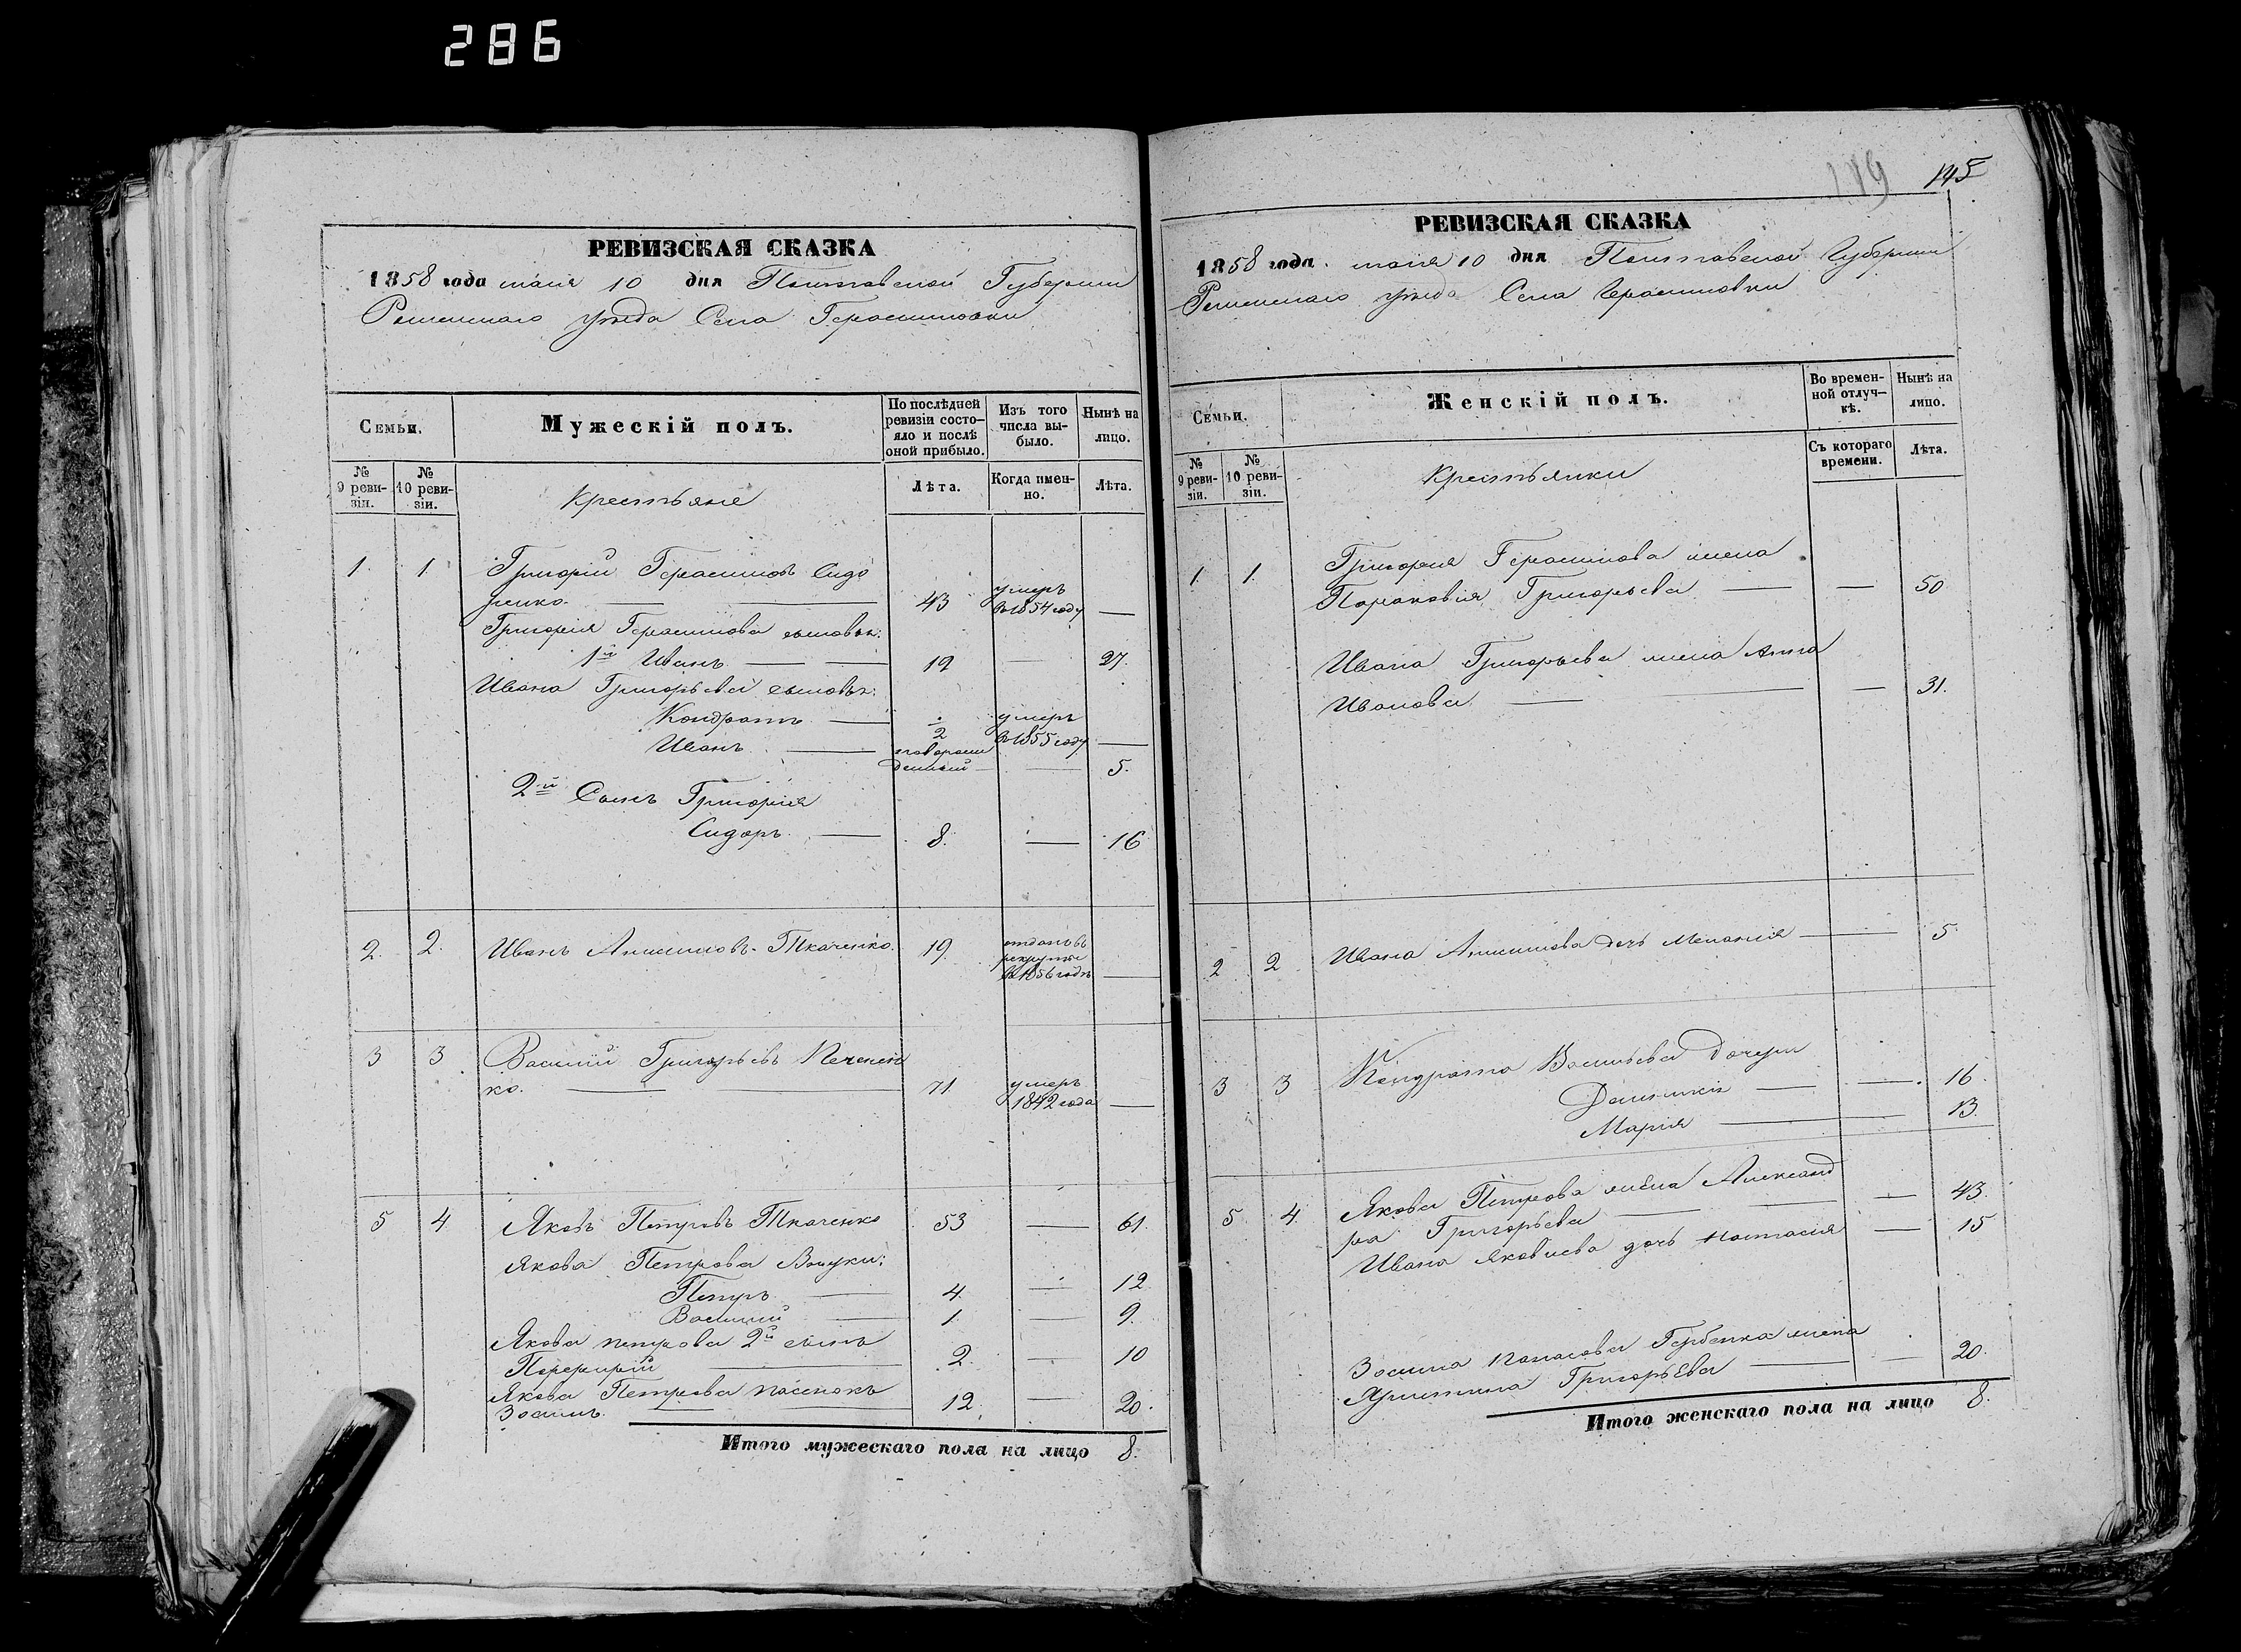 286
РЕВИЗСКАЯ СКАЗКА
1858 года мая 10 дня Полтавской Губернии
Роменскаго уѣзда Села Герасимовки
Семьи.
Мужескій полъ.
По послѣдней ревизіи состо-
яло и послѣ
оной прибыло.
Изъ того
числа вы-
было.
Нынѣ на
лицо.
№
9 реви-
зіи.
№
10 реви-
зіи.
Крестьяне
Лѣта.
Когда имен-
но.
Лѣта.
1. 1. Григорій Герасимовъ Сидо
ренко. 43 умеръ
въ 1854 году
Григорія Герасимова сыновья:
1й Иванъ 19 27.
Ивана Григорьева сыновья:
Кондратъ 2 умеръ
въ 1855 году
Иванъ новорож
денный 5.
2й Сынъ Григорія
Сидоръ 8. 16
2. 2. Иванъ Анисимовъ Ткаченко. 19. отданъ въ
рекруты
въ 1856 годѣ
3 3 Василій Григорьевъ Печенен
ко. 71 умеръ
1842 года
5 4 Яковъ Петровъ Ткаченко 53 61.
Якова Петрова Внуки:
Петръ 4. 12
Василій 1. 9.
Якова Петрова 2й сынъ
Порфирій 2. 10
Якова Петрова пасенокъ
Зосимъ 12. 20.
Итого мужескаго пола на лицо 8.
145
РЕВИЗСКАЯ СКАЗКА
1858 года мая 10 дня Полтавской Губернии
Роменскаго уѣзда Села Герасимовки
Семьи.
Женскій полъ.
Во времен-
ной отлуч-
кѣ.
Нынѣ на
лицо.
№
9 реви-
зіи.
№
10 реви-
зіи.
Крестьянки
Съ котораго
времени.
Лѣта.
1. 1. Григорія Герасимова жена
Параковія Григорьева 50
Ивана Григорьева жена Анна
Иванова 31.
2 2 Ивана Анисимова дочь Меланія 5.
3 3 Кондрата Васильева дочери
16.
Марія 13.
5 4. Якова Петрова жена Александ
ра Григорьева 43.
Ивана Яковлева дочь Настасія 15
Зосима жена
Христина Григорьева 20.
Итого женскаго пола на лицо 8.